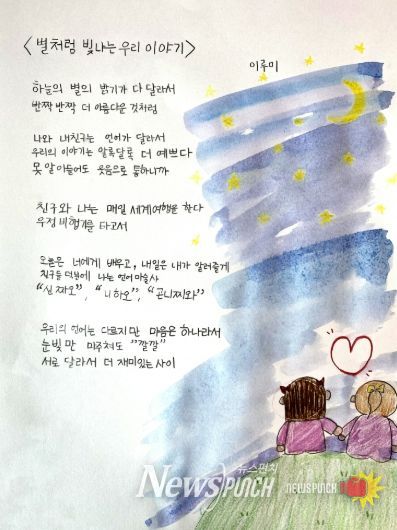 <별처럼 빛나는 우리 이야기>
이루미
하늘의 별의 밝기가 다 달라서
반짝 반짝 더 아름다운 것처럼
나와 내친구는 언어가 달라서
우리의 이야기는 알록달록 더 예쁘다
못 알아들어도 웃음으로 통하니까
친구와 나는 매일 세계여행을 한다
우정 비행기를 타고서
오늘은 너에게 배우고, 내일은 내가 알려줄게
친구들 덕분에 나는 언어마술사
"신짜오", "니하오", "곤니찌와"
우리의 언어는 다르지만 마음은 하나라서
눈빛만 마주쳐도 "깔깔"
서로 달라서 더 재미있는 사이
뉴스펀치
NewsPunch
NEWSPUNCH